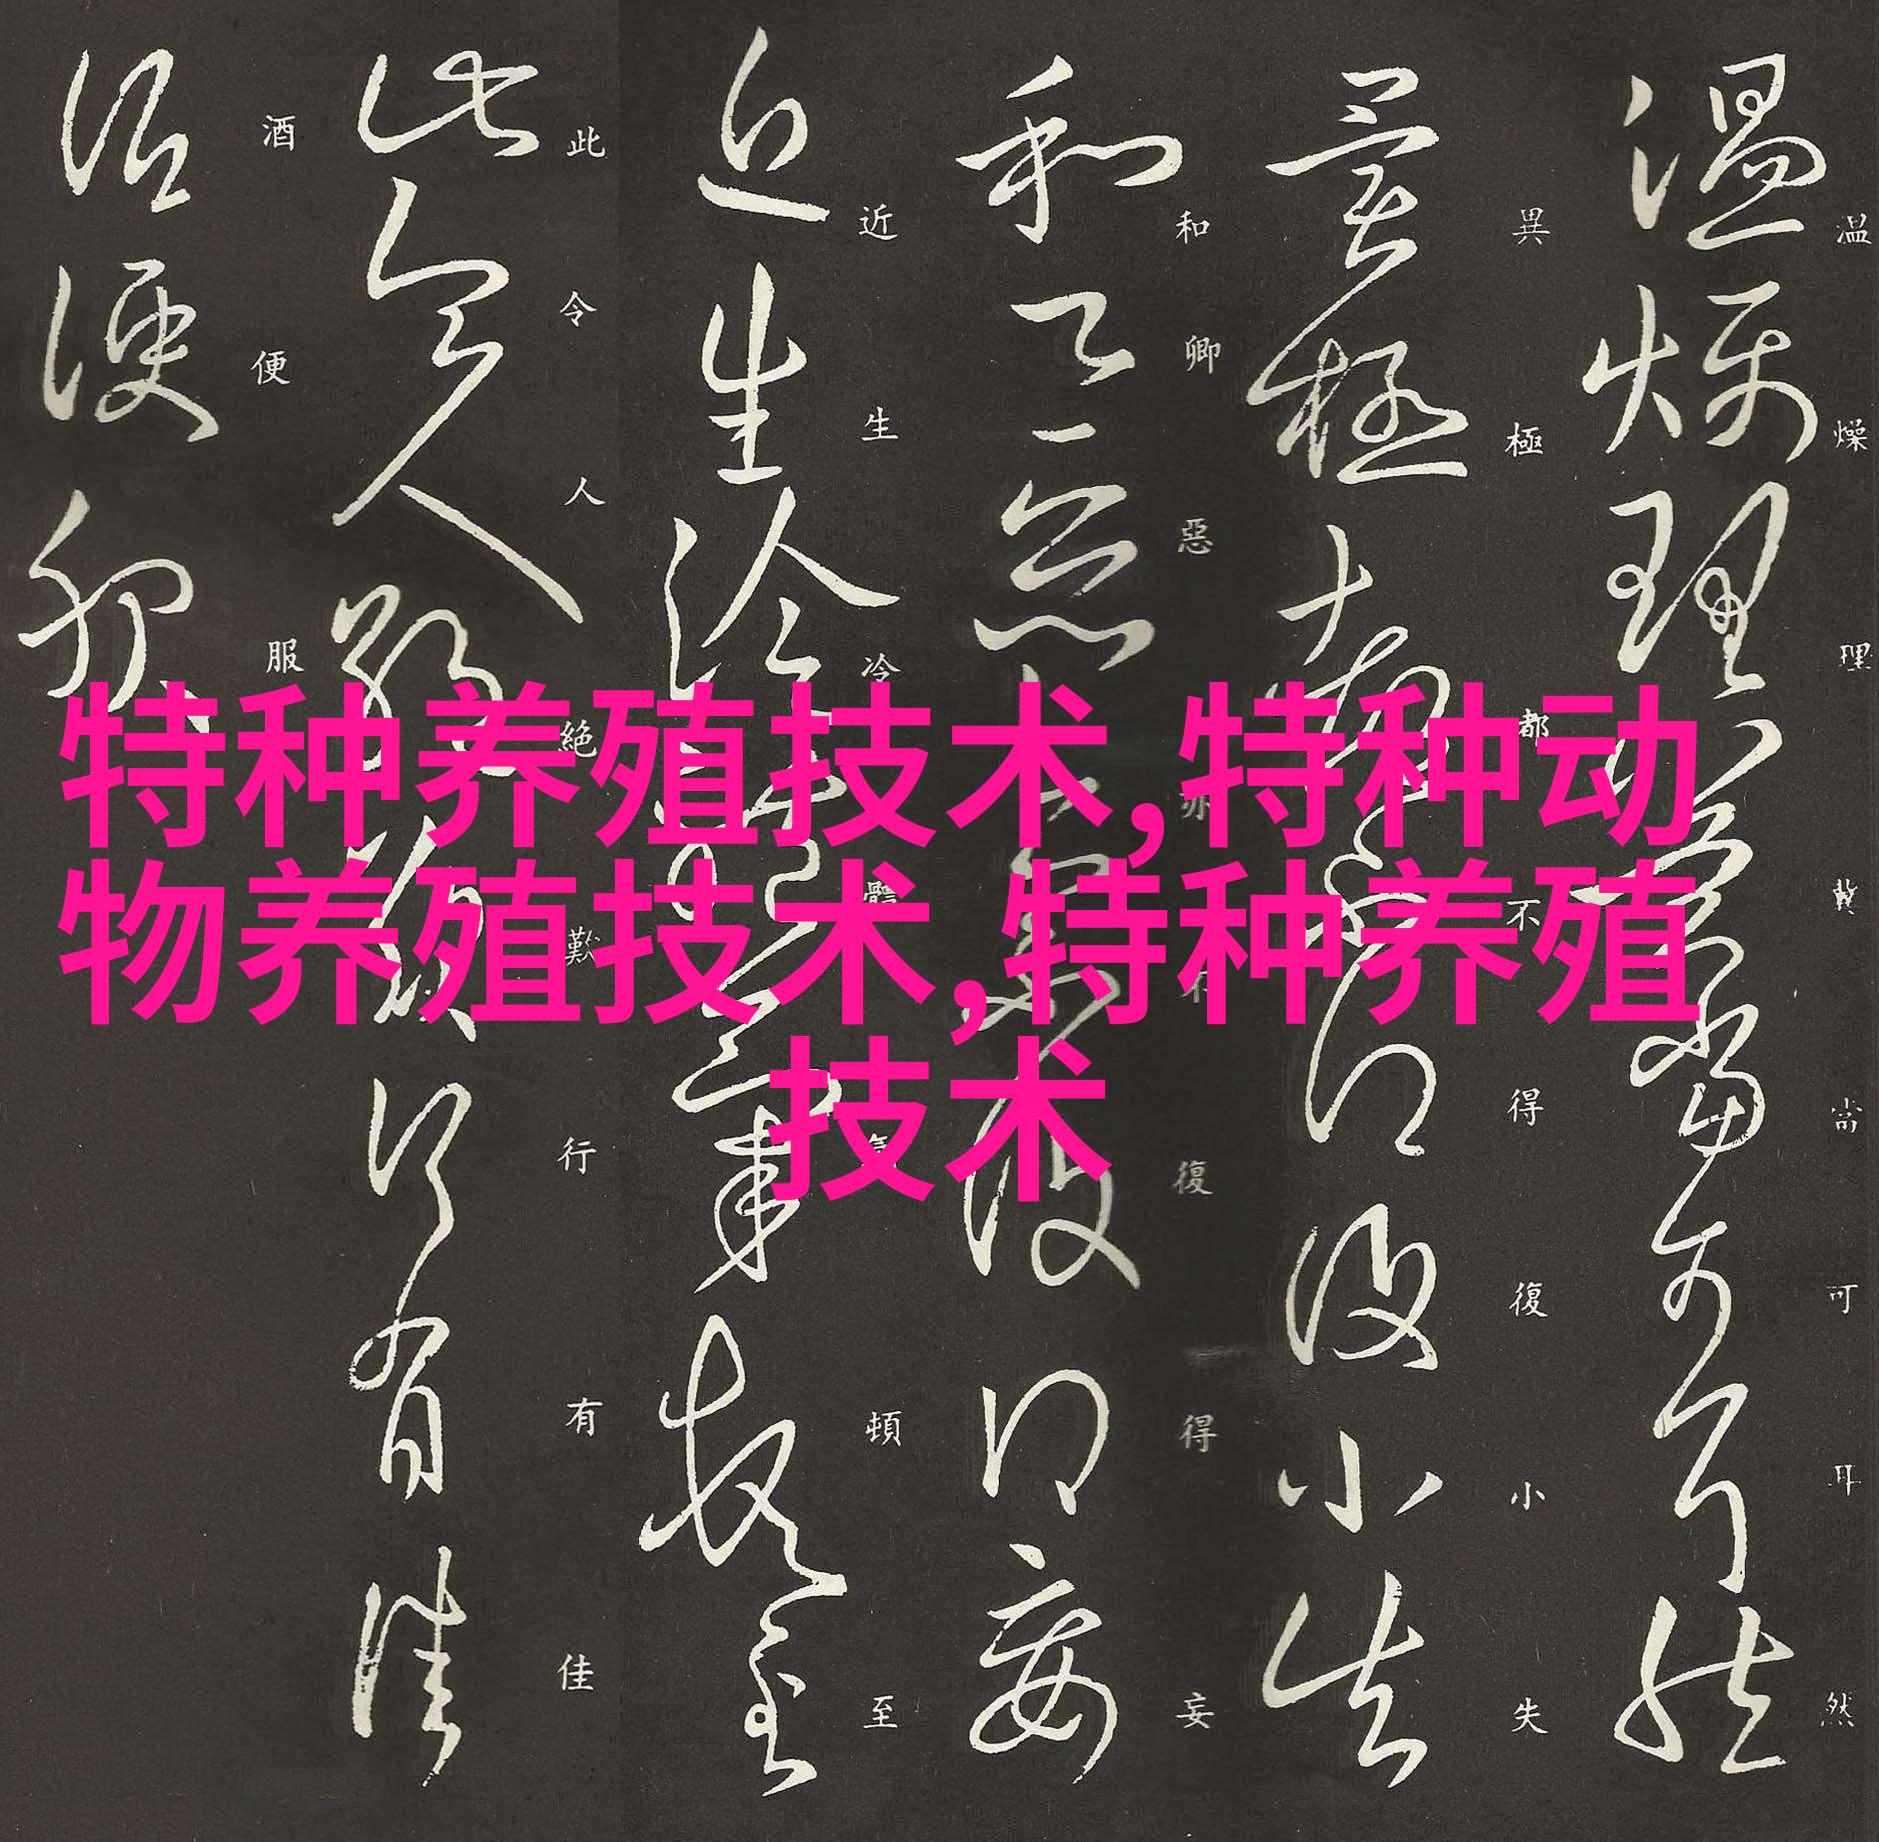 温燥理當可耳然
異極都不得復小失
和卿惡亦不復得妄
近生冷體氣頓至
此令人絕歎行有佳
酒便服
特种养殖技术,特种动
物养殖技术,特种养殖
技术